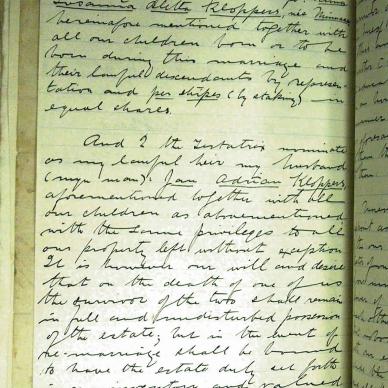 Susanna Aletta Kloppers, née
hereinafore mentioned together with
all our children born or to be
born during this marriage and
their lawful descendants by represen-
tation and per stirpes (by staking) in
equal shares.
And I the Testatrix nominate
as my lawful heir my husband
(mijn man) Jan Adrian Kloppers,
aforementioned together with all
our children as abovementioned
with the same privileges to all
our property left without exception
It is however our will and desire
that on the death of one of us
the survivor of the two shall remain
in full and undisturbed possession
of the estate; but in the event of
re-marriage shall be bound
to have the estate duly set forth
valued